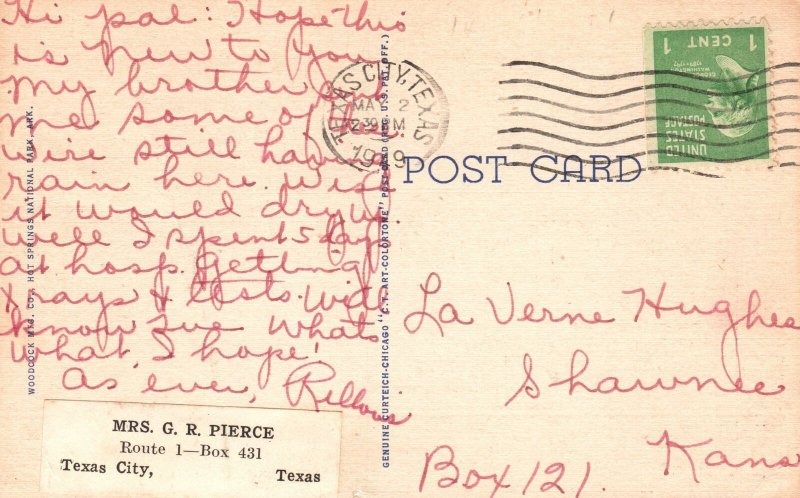 Hi pal: Hope this
is new to you
my brother got
me some of
We're still have
rain here. Wish
it would dry up
well I spent 5 days
at hosp. getting
Xrays & tests. will
know Tue. whats
what, I hope!
As ever,
MRS. G. R. PIERCE
Route 1—Box 431
Texas City, Texas
WOODCOCK MFG. CO., HOT SPRINGS NATIONAL PARK, ARK.
GENUINE CURTEICH-CHICAGO "C.T. ART-COLORTONE" POST CARD (REG. U.S. PAT. OFF.)
TEXAS CITY, TEXAS
MAY 2
2 30 PM
1949
1 CENT 1
UNITED
STATES
POSTAGE
POST CARD
La Verne Hughes
Shawnee
Kans
Box 121.